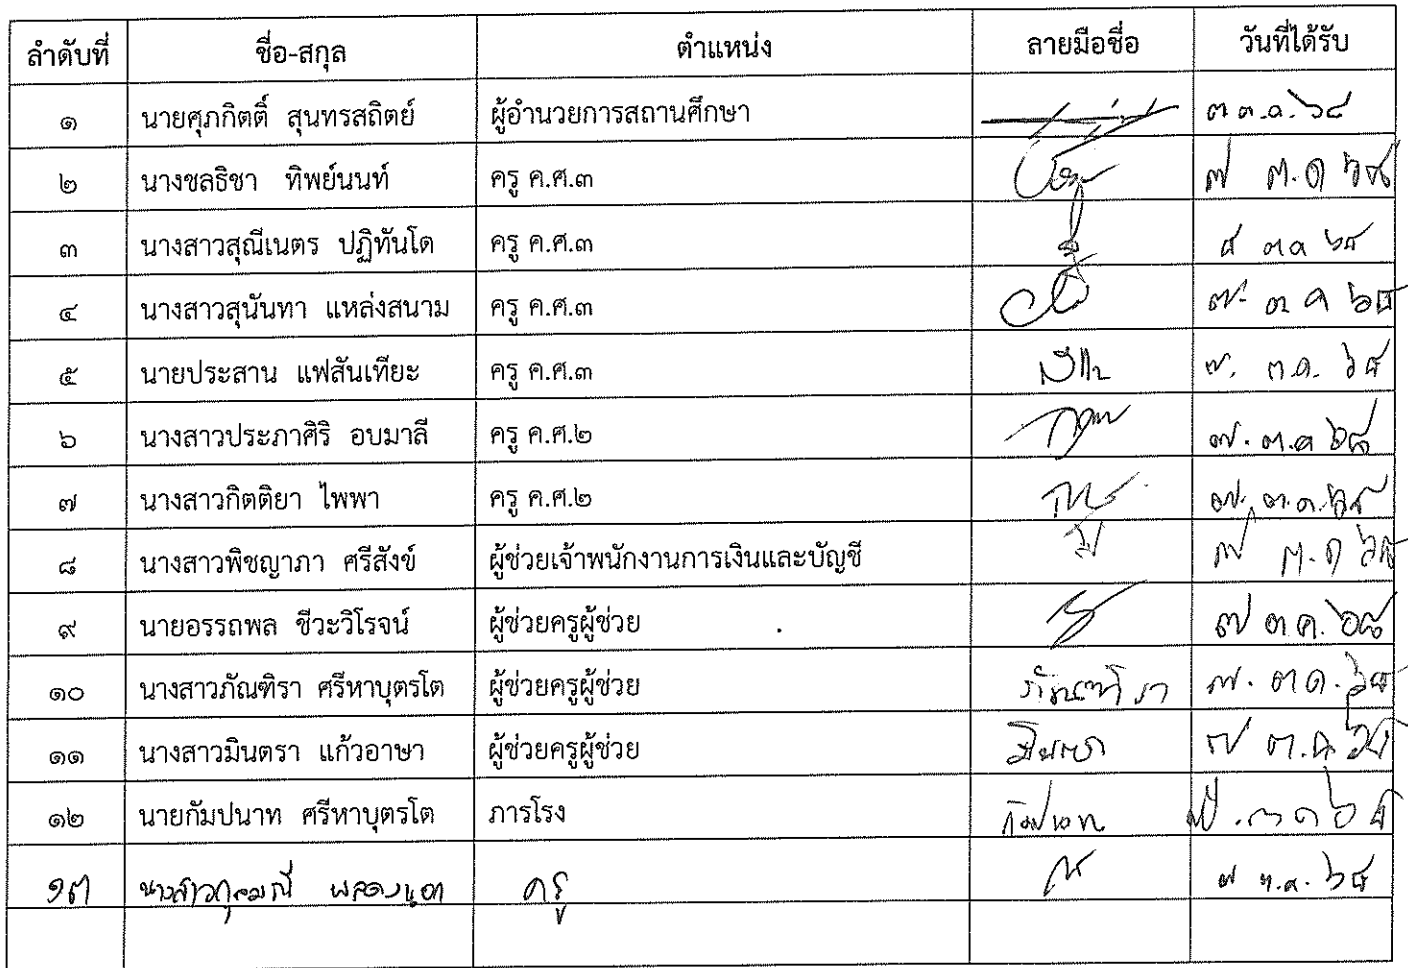 ลำดับที่ ชื่อ-สกุล ตำแหน่ง ลายมือชื่อ วันที่ได้รับ
๑ นายศุภกิตติ์ สุนทรสถิตย์ ผู้อำนวยการสถานศึกษา ต.ค. ๖๘
๒ นางชลธิชา ทิพย์นนท์ ครู ค.ศ.๓ ๗ ต.ค ๖๘
๓ นางสาวสุณีเนตร ปฏิทันโด ครู ค.ศ.๓ ต.ค ๖๘
๔ นางสาวสุนันทา แหล่งสนาม ครู ค.ศ.๓ ๗ ต.ค ๖๘
๕ นายประสาน แฟสันเทียะ ครู ค.ศ.๓ ๗. ต.ค. ๖๘
๖ นางสาวประภาศิริ อบมาลี ครู ค.ศ.๒ ๗. ต.ค ๖๘
๗ นางสาวกิตติยา ไพพา ครู ค.ศ.๒ ๗. ต.ค. ๖๘
๘ นางสาวพิชญาภา ศรีสังข์ ผู้ช่วยเจ้าพนักงานการเงินและบัญชี ๗ ต.ค ๖๘
๙ นายอรรถพล ชีวะวิโรจน์ ผู้ช่วยครูผู้ช่วย ๗ ต.ค. ๖๘
๑๐ นางสาวภัณฑิรา ศรีหาบุตรโต ผู้ช่วยครูผู้ช่วย ภัณฑิรา ๗. ต.ค. ๖๘
๑๑ นางสาวมินตรา แก้วอาษา ผู้ช่วยครูผู้ช่วย มินตรา ๗ ต.ค ๖๘
๑๒ นายกัมปนาท ศรีหาบุตรโต ภารโรง กัมปนาท ๗ .ต.ค ๖๘
๑๓ นางสาวกุลมณี ครู ๗ ต.ค. ๖๘